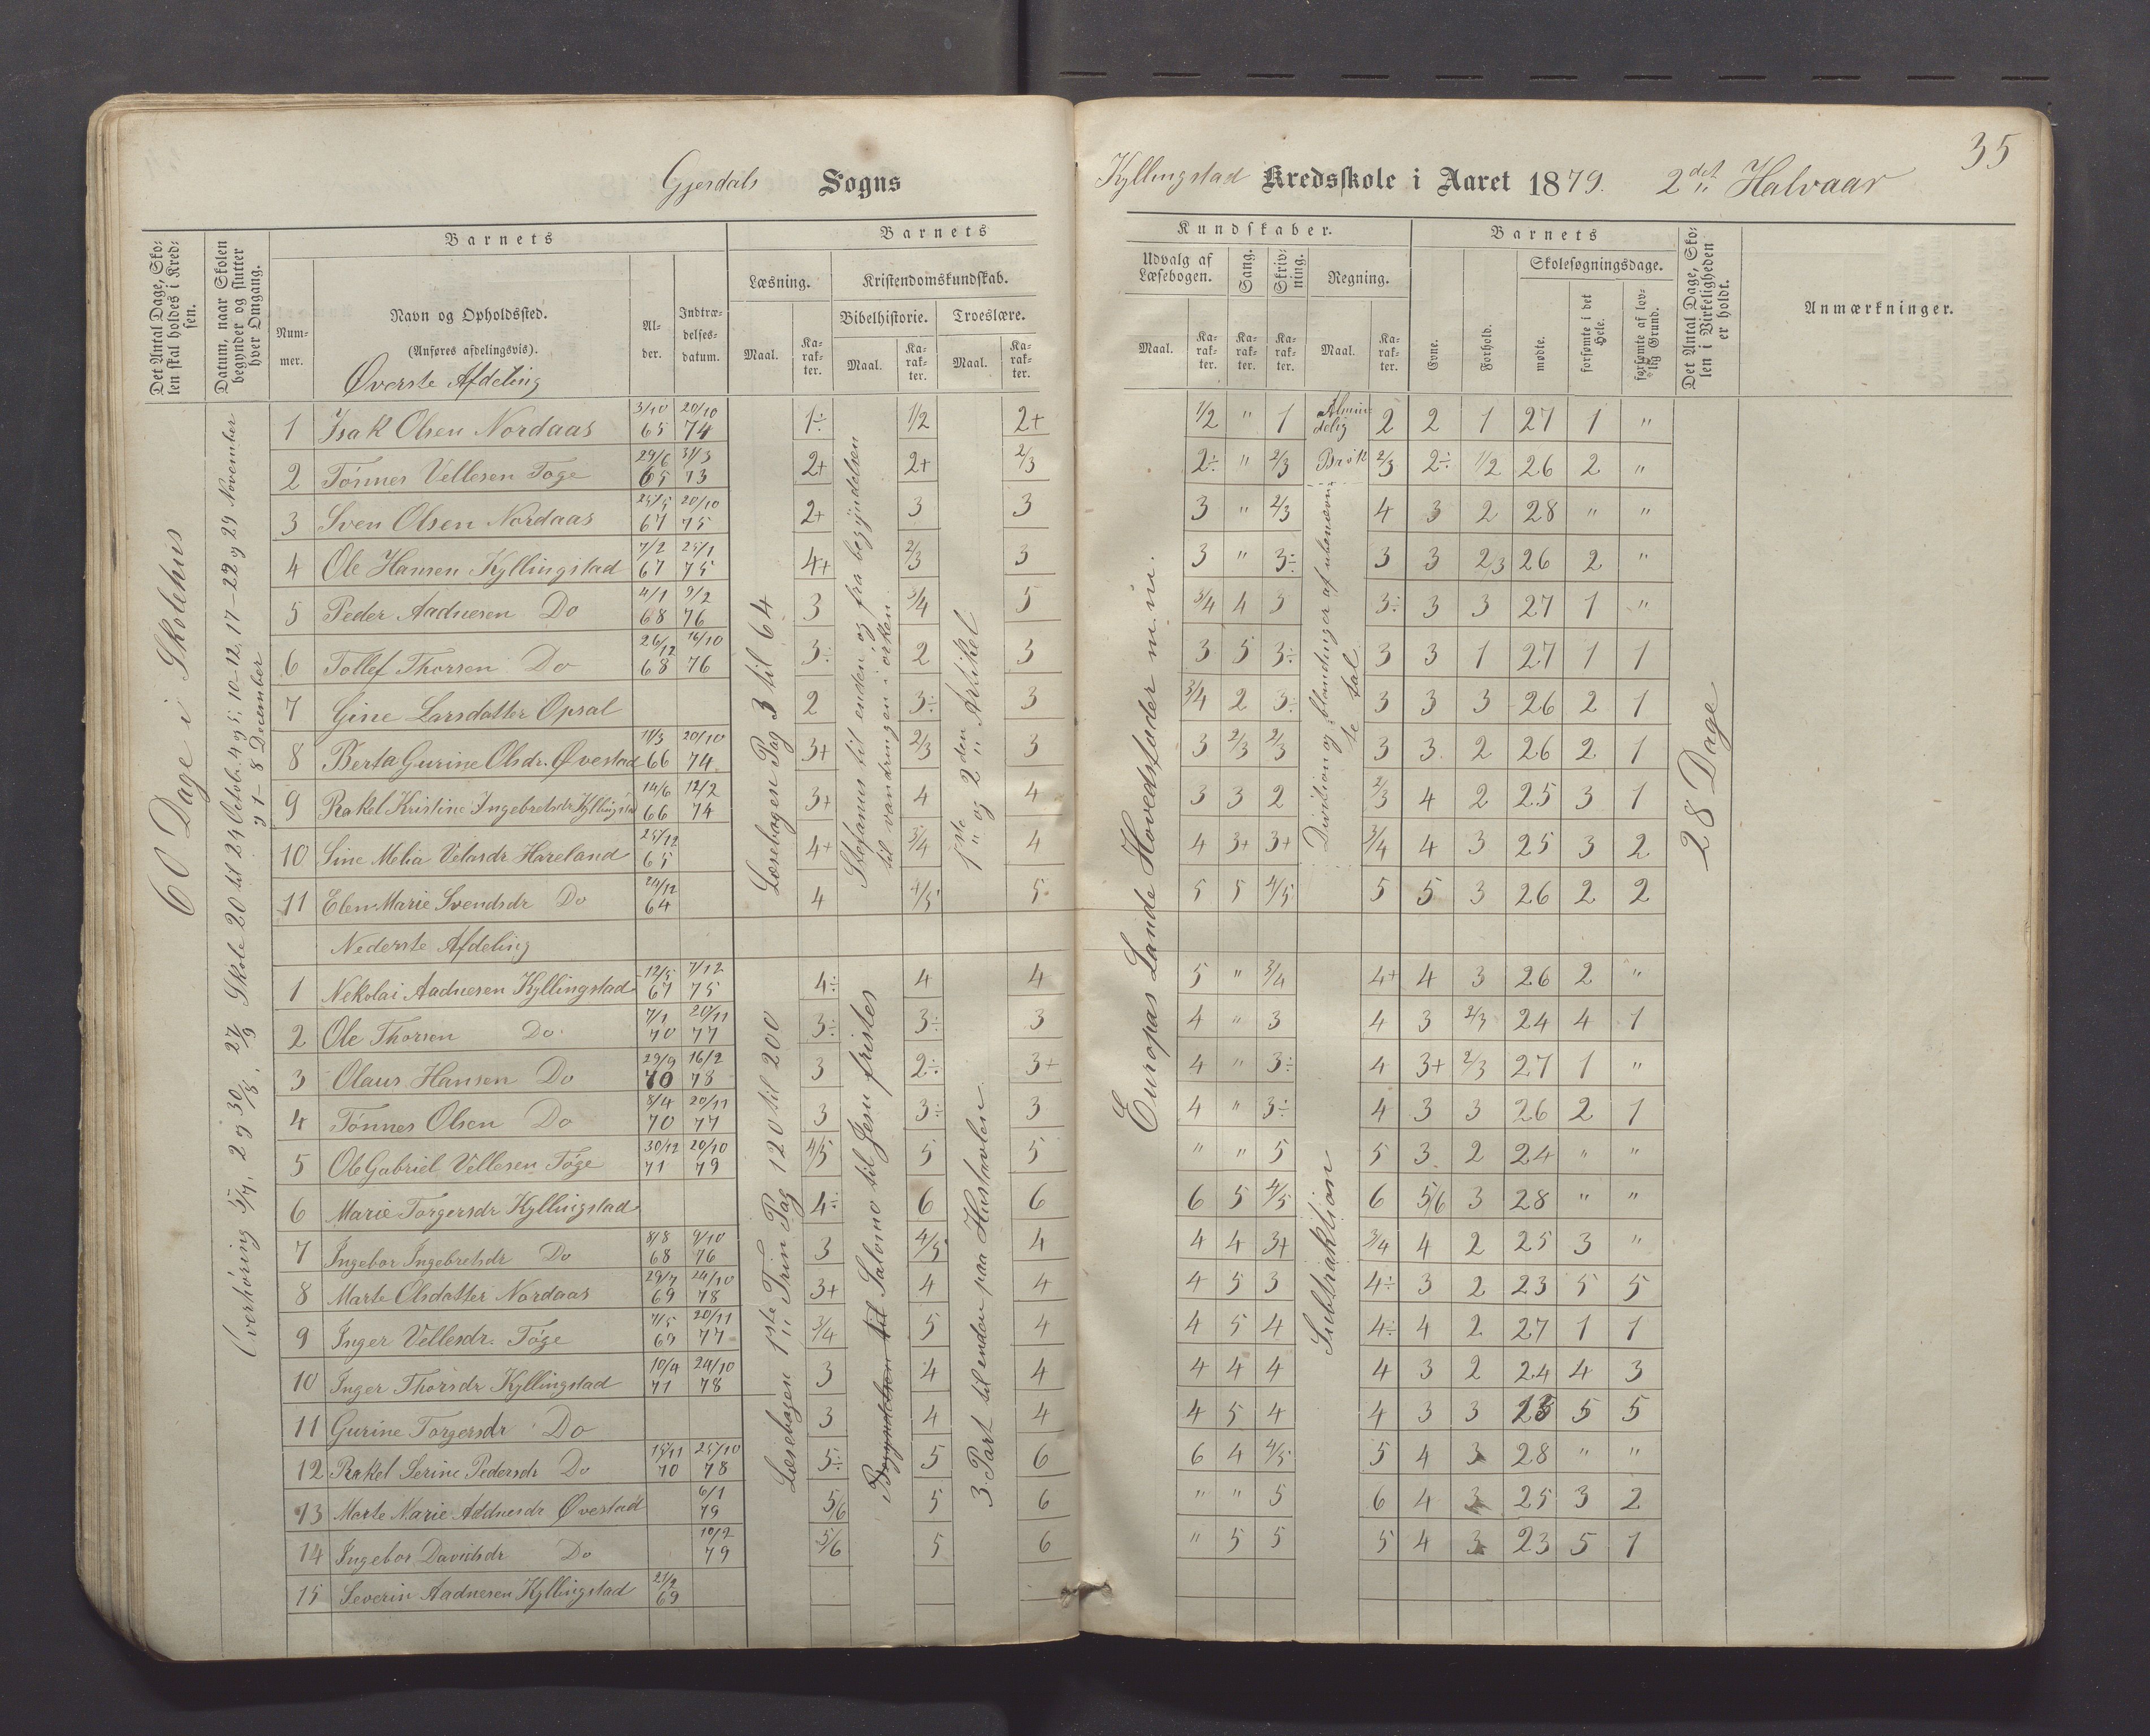 35
Gjesdals Sogns Kyllingstad Kredsskole i Aaret 1879. 2det Halvaar
Det Antal Dage, Skolen skal holdes i Kredsen.
Datum, naar Skolen begynder og slutter hver Omgang.
Barnets
Nummer.
Navn og Opholdssted.
(Anføres afdelingsvis).
Alder.
Indtrædelsesdatum.
Barnets Kundskaber.
Læsning.
Maal.
Karakter.
Kristendomskundskab.
Bibelhistorie.
Maal.
Karakter.
Troeslære.
Maal.
Karakter.
Udvalg af Læsebogen.
Maal.
Karakter.
Sang.
Karakter.
Skrivning.
Karakter.
Regning.
Maal.
Karakter.
Barnets
Evne.
Forhold.
Skolesøgningsdage.
mødte.
forsømte i det Hele.
forsømte af lovlig Grund.
Det Antal Dage, Skolen i Virkeligheden er holdt.
Anmærkninger.
60 Dage i Skolehus
Overhöring 5/7, 2 og 30/8, 27/9 Skole 20 til 24 Octob. 4 og 5, 10-12, 17-22 og 29 November
og 1-8 December
Øverste Afdeling
Læsebogen Pag 3 til 64
Stefanus til enden og fra begyndelsen
til vandringen i örken
1ste og 2den Artikel
Europas Lande Hovedstæder m.m.
Almindelig Brök
Division og blandinger af ubenævnte tal
28 Dage
1 Isak Olsen Nordaas 3/10 65 20/10 74 1÷ 1/2 2+ 1/2 " 1 2 2 1 27 1 "
2 Tönnes Vellesen Töge 29/6 65 31/3 73 2+ 2+ 2/3 2÷ " 2/3 2/3 2÷ 1/2 26 2 "
3 Sven Olsen Nordaas 25/5 67 20/10 75 2+ 3 3 3 " 2/3 4 3 2 28 " "
4 Ole Hansen Kyllingstad 7/2 67 25/1 75 4+ 2/3 3 3 " 3÷ 3 3 2/3 26 2 "
5 Peder Aadnesen Do 4/1 68 9/2 76 3 3/4 5 3/4 4 3 3÷ 3 3 27 1 "
6 Tollef Thorsen Do 26/12 68 16/10 76 3÷ 2 3 3 5 3÷ 3 3 1 27 1 1
7 Gine Larsdatter Opsal 2 3÷ 3 3/4 2 3÷ 3 3 3 26 2 1
8 Berta Gurine Olsdr. Øvestad 11/3 66 20/10 74 3+ 2/3 3 3 2/3 2/3 3 3 2 26 2 1
9 Rakel Kristine Ingebretsdr Kyllingstad 14/6 66 12/2 74 3+ 4 4 3 3 2 2/3 4 2 25 3 1
10 Sine Melia Velasdr Hareland 25/12 65 4+ 3/4 4 4 3+ 3+ 3/4 4 3 25 3 2
11 Elen Marie Svendsdr Do 24/12 64 4 4/5 5 5 5 4/5 5 5 3 26 2 2
Nederste Afdeling
Læsebogen 1ste Trin Pag 120 til 200
Begyndelsen til Salomo til Jesu fristes
3. Part til enden paa Hustavlen
Subtraktion
1 Nekolai Aadnesen Kyllingstad 12/5 67 7/12 75 4÷ 4 4 5 " 3/4 4+ 4 3 26 2 "
2 Ole Thorsen Do 7/1 70 20/11 77 3÷ 3÷ 3 4 " 3 4 3 2/3 24 4 1
3 Olaus Hansen Do 29/9 70 16/2 78 3 2÷ 3+ 4 " 3÷ 4 3+ 2/3 27 1 "
4 Tönnes Olsen Do 8/4 70 20/11 77 3 3÷ 3 4 " 3÷ 4 3 3 26 2 1
5 Ole Gabriel Vellesen Töge 30/12 71 20/10 79 4/5 5 5 " " 5 5 3 2 24 " "
6 Marie Torgersdr Kyllingstad 4÷ 6 6 6 5 4/5 6 5/6 3 28 " "
7 Ingebor Ingebretsdr Do 8/8 68 9/10 76 3 4/5 4 4 4 3+ 3/4 4 2 25 3 "
8 Marte Olsdatter Nordaas 29/7 69 24/10 78 3+ 4 4 4 5 3 4÷ 3 2 23 5 5
9 Inger Vellesdr. Töge 7/5 69 20/11 77 3/4 5 4 4 5 4 4÷ 4 2 27 1 1
10 Inger Thorsdr Kyllingstad 10/4 71 24/10 78 3 4 4 4 4 4 4 3 2 24 4 3
11 Gurine Torgersdr Do 3 4 4 4 5 4 4 3 3 23 5 5
12 Rakel Serine Pedersdr Do 15/11 70 25/10 78 5÷ 5 6 6 4 4/5 5 4 3 28 " "
13 Marte Marie Addnesdr Øvestad 6/1 79 5/6 5 6 " " 5 6 4 3 25 3 2
14 Ingebor Davidsdr Do 10/2 79 5/6 5 6 " 5 5 5 4 3 23 5 1
15 Severin Aadnesen Kyllingstad 23/2 69